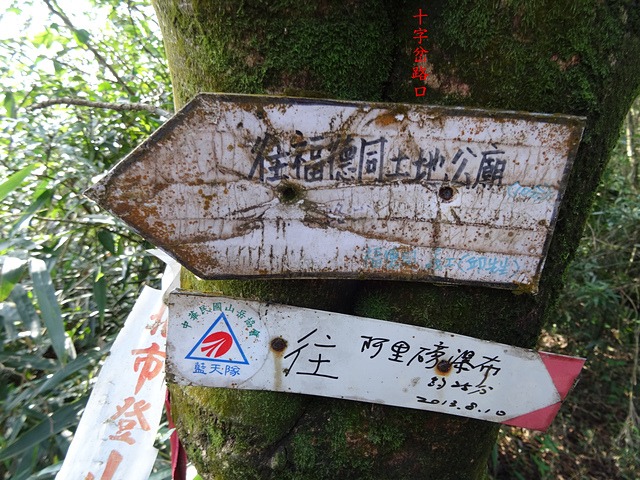 十字岔路口
往福德同土地公廟
中華民國山岳協會
藍天隊
往 阿里磅瀑布
約25分
2013.8.10
市登山